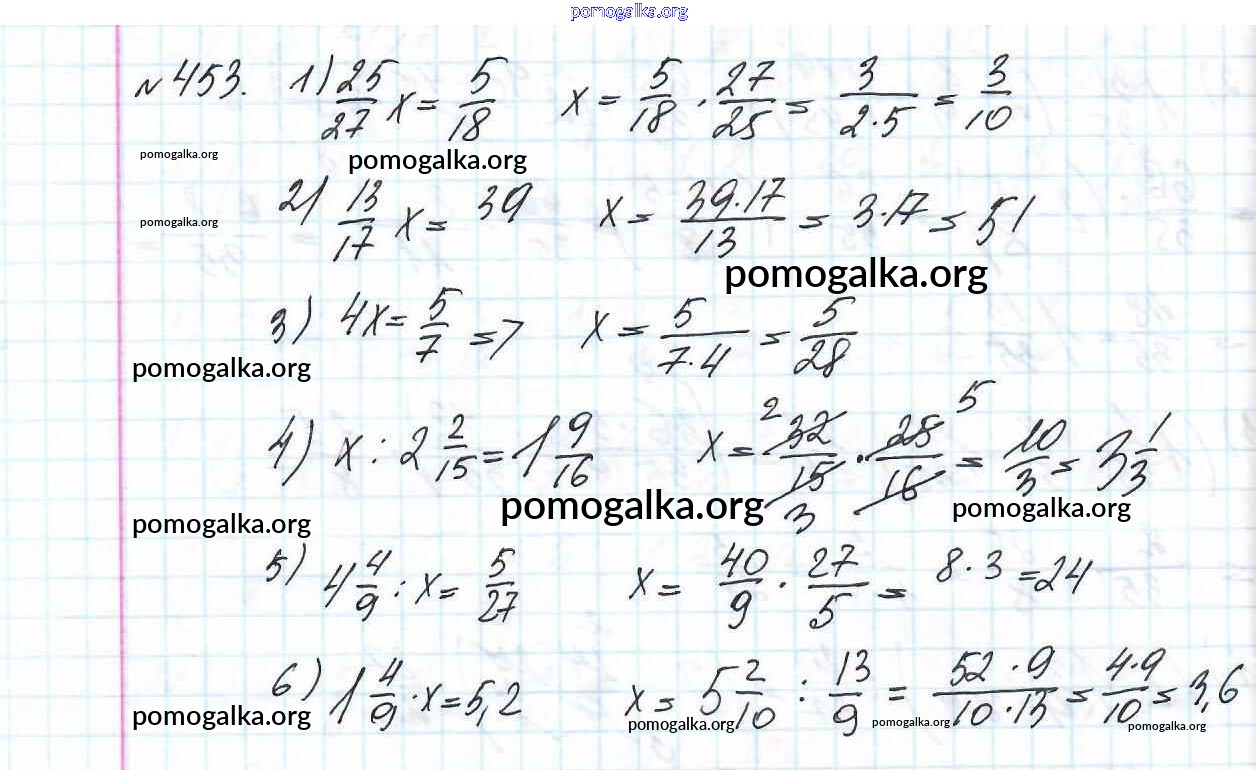 pomogalka.org
№453. 1) 25/27 x = 5/18 x = 5/18 · 27/25 = 3/2·5 = 3/10
pomogalka.org pomogalka.org
2) 13/17 x = 39 x = 39·17/13 = 3·17 = 51
pomogalka.org
pomogalka.org
3) 4x = 5/7 => x = 5/7·4 = 5/28
pomogalka.org
4) x : 2 2/15 = 1 9/16 x = 2 32/15 3 · 25/16 5 = 10/3 = 3 1/3
pomogalka.org pomogalka.org pomogalka.org
5) 4 4/9 : x = 5/27 x = 40/9 · 27/5 = 8·3 = 24
6) 1 4/9 · x = 5,2 x = 5 2/10 : 13/9 = 52·9/10·13 = 4·9/10 = 3,6
pomogalka.org pomogalka.org pomogalka.org pomogalka.org